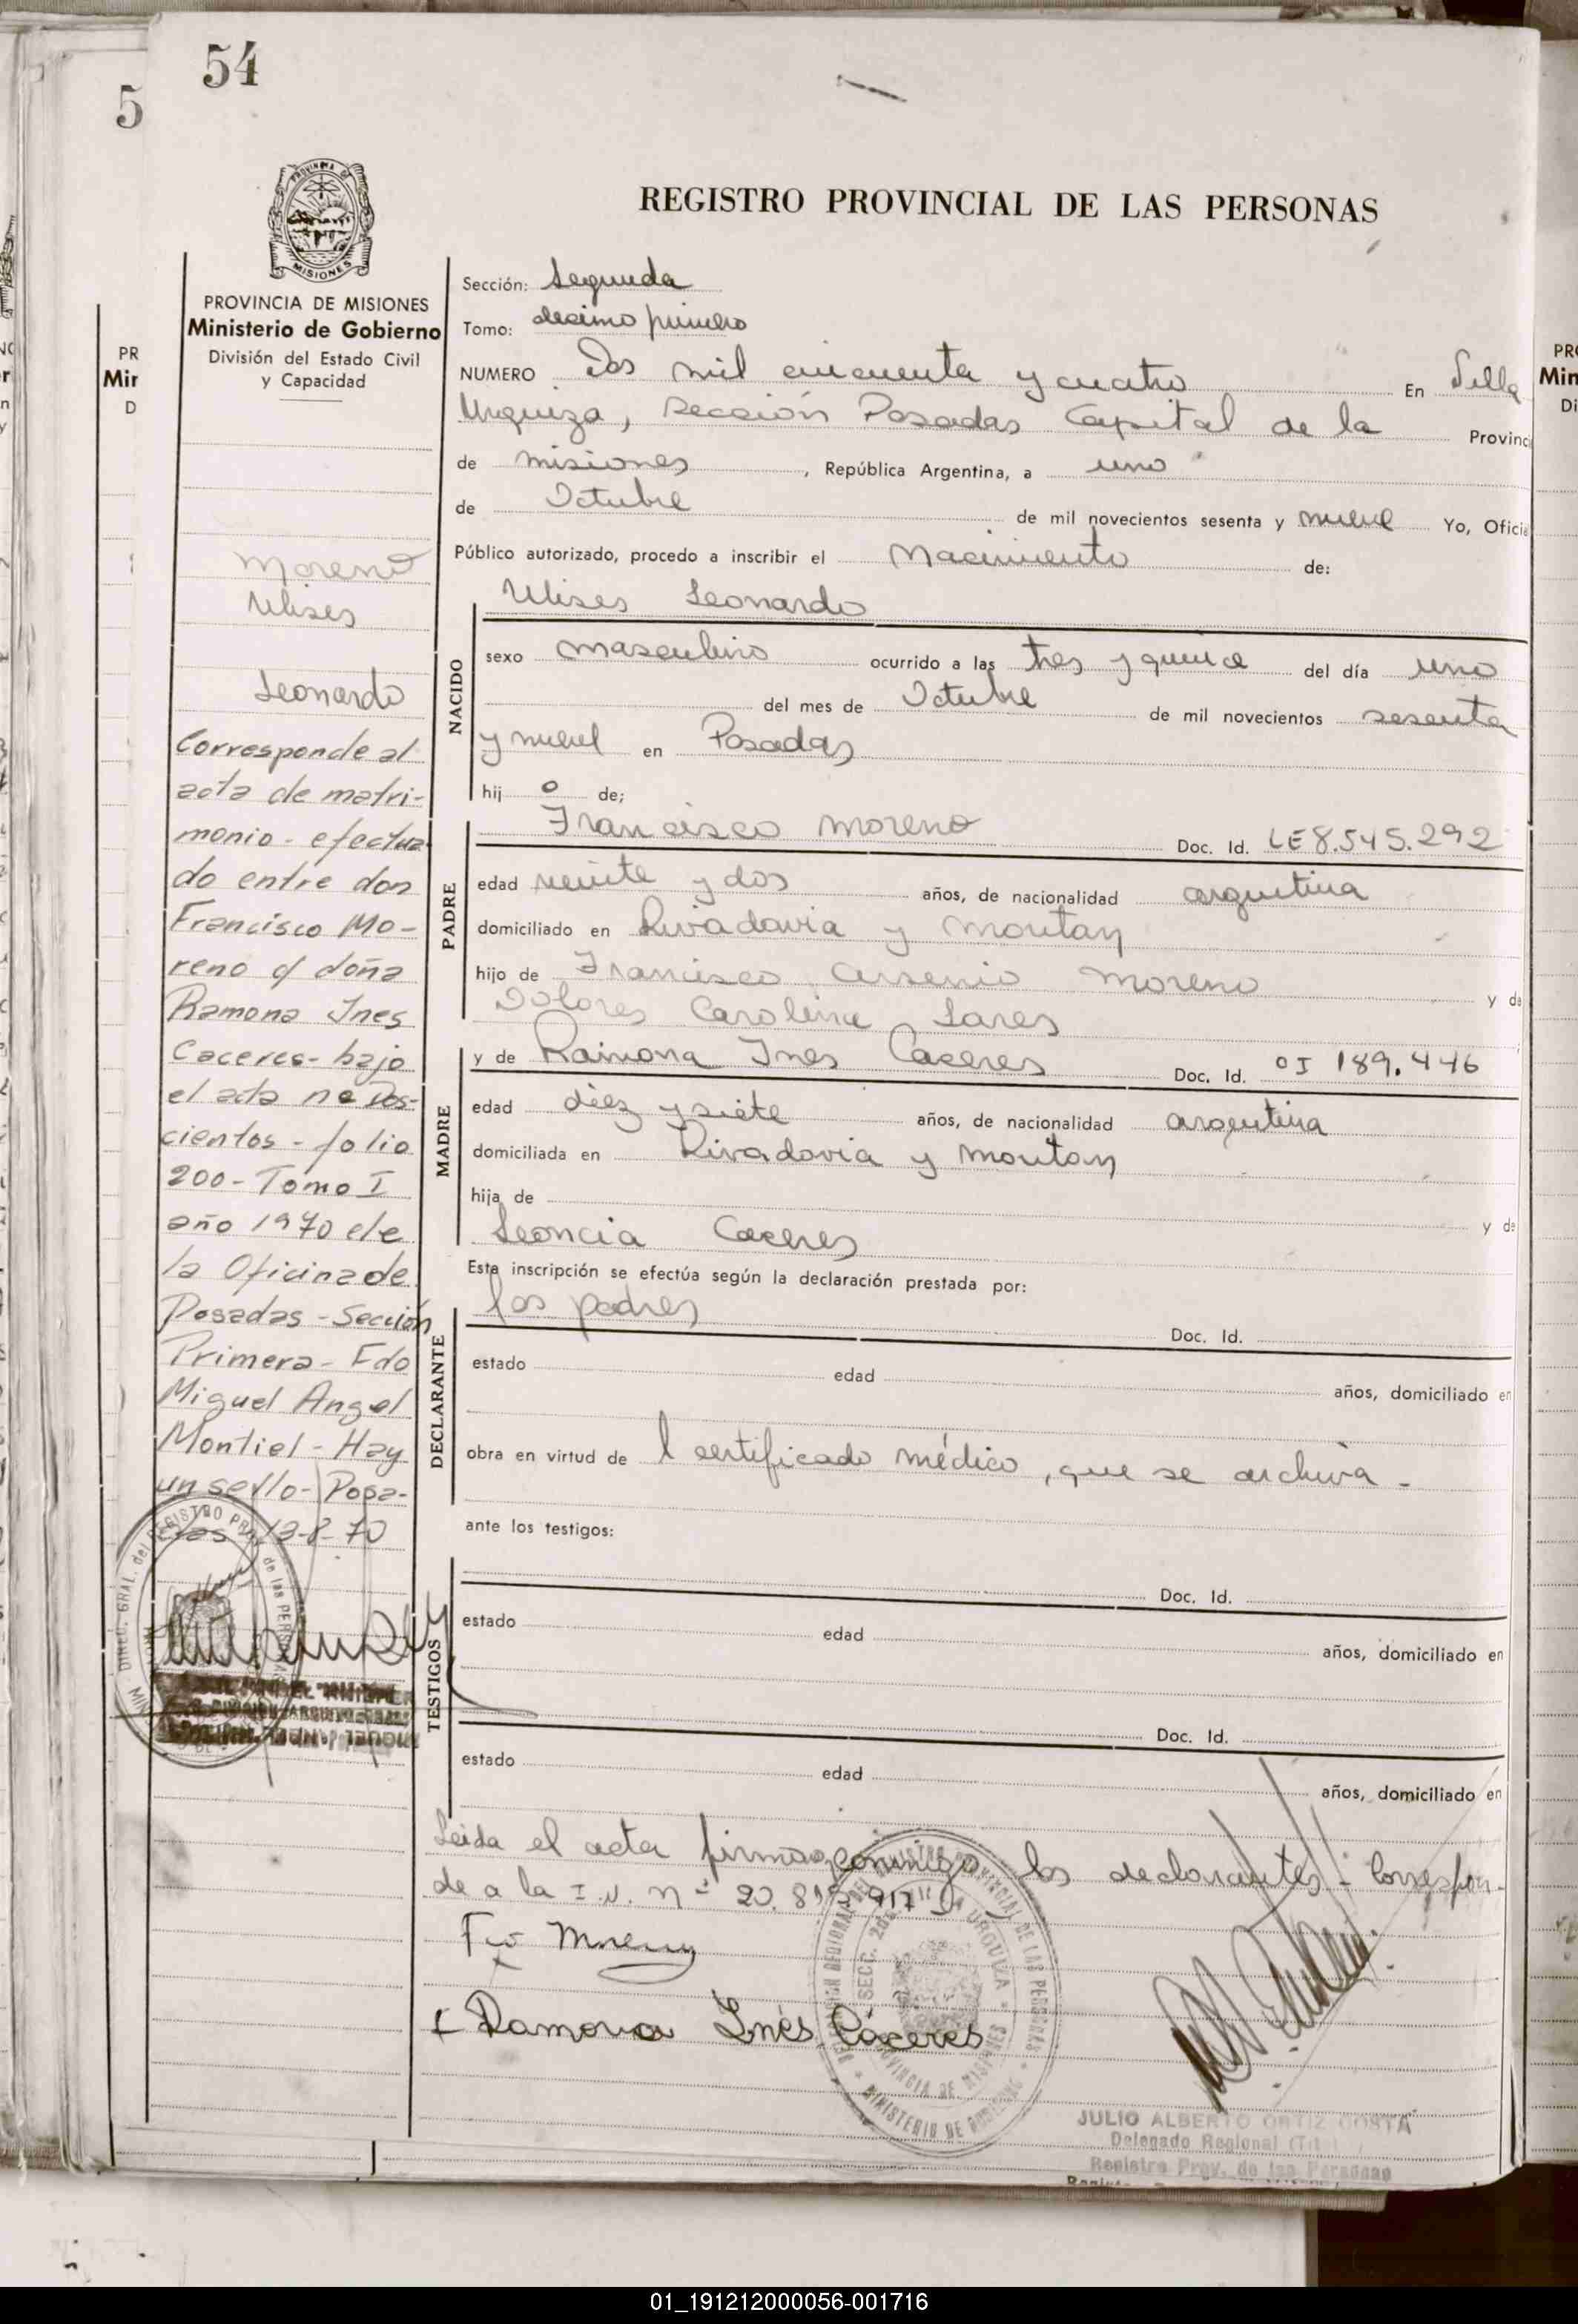 54
5
PROVINCIA DE
MISIONES
REGISTRO PROVINCIAL DE LAS PERSONAS
PROVINCIA DE MISIONES
Ministerio de Gobierno
División del Estado Civil
y Capacidad
Moreno
Ulises
Leonardo
Corresponde al
acta de matri-
monio - efectua
do entre don
Francisco Mo-
reno c/ doña
Ramona Ines
Caceres - bajo
el acta no Dos-
cientos - folio
200 - Tomo I
año 1970 de
la Oficina de
Posadas - Sección
Primera - Fdo
Miguel Angel
Montiel - Hay
un sello - Posa-
das 13-8-70
Sección: Segunda
Tomo: decimo primero
NUMERO Dos mil cincuenta y cuatro En Villa
Urquiza, Sección Posadas Capital de la Provinci
de misiones, República Argentina, a uno
de Octubre de mil novecientos sesenta y nueve Yo, Oficia
Público autorizado, procedo a inscribir el Nacimiento de:
Ulises Leonardo
NACIDO
sexo masculino ocurrido a las tres y quince del día uno
del mes de Octubre de mil novecientos sesenta
y nueve en Posadas
hij o de;
PADRE
Francisco Moreno Doc. Id. LE 8.545.292
edad veinte y dos años, de nacionalidad argentina
domiciliado en Rivadavia y Moritan
hijo de Francisco Arsenio Moreno y de
Dolores Carolina Lares
MADRE
y de Ramona Ines Caceres Doc. Id. OI 189.446
edad diez y siete años, de nacionalidad argentina
domiciliada en Rivadavia y Moritan
hija de y de
Leoncia Caceres
Esta inscripción se efectúa según la declaración prestada por:
DECLARANTE
los padres Doc. Id.
estado edad años, domiciliado en
obra en virtud de l certificado médico, que se archiva -
ante los testigos:
TESTIGOS
Doc. Id.
estado edad años, domiciliado en
Doc. Id.
estado edad años, domiciliado en
Leida el acta firman conmigo los declarantes - Correspon-
de a la I.N. nº 20.
Fco Moreno
Ramona Inés Cáceres
JULIO ALBERTO ORTIZ COSTA
Delegado Regional
Registro Prov. de las Personas
01_191212000056-001716